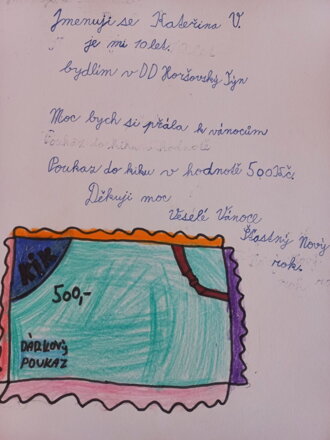 Jmenuji se Kateřina V.
je mi 10 let.
bydlím v DD Horšovský Týn
Moc bych si přála k vánocům
Poukaz do kiku v hodnotě
Poukaz do kiku v hodnotě 500Kč.
Děkuji moc
Veselé Vánoce
Šťastný Nový
rok.
kik
500,-
DÁRKOVÝ
POUKAZ